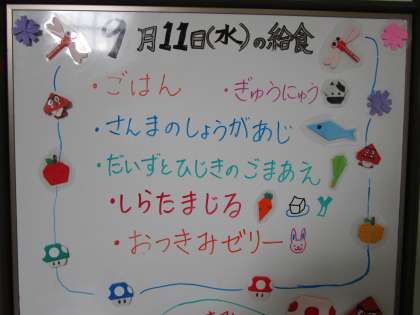 9月11日(水)の給食
・ごはん ・ぎゅうにゅう
・さんまのしょうがあじ
・だいずとひじきのごまあえ
・しらたまじる
・おつきみゼリー